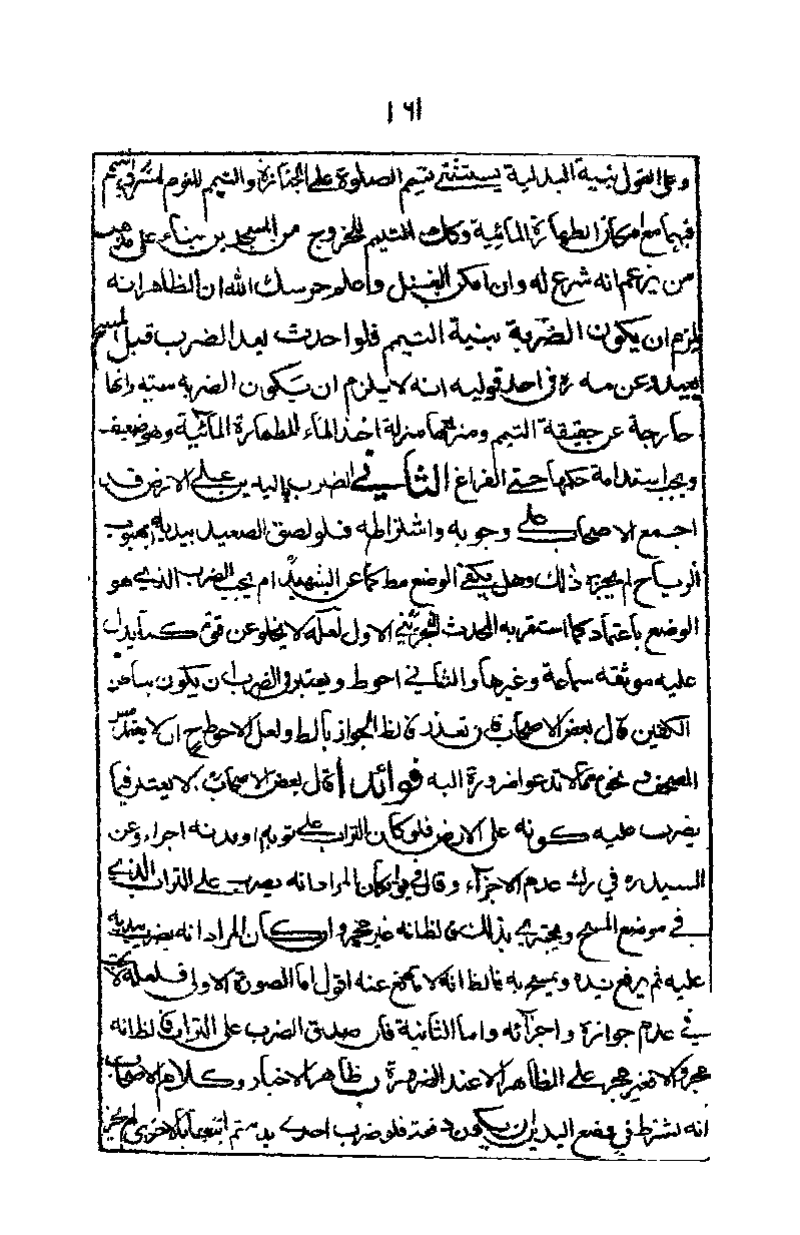 ١٦١
وعلى القول بنية البدلية يستثنى تيمم الصلوة على الجنازة والتيمم للنوم
فيهما مع امكان الطهارة المائية وكذا التيمم للخروج من المسجدين بناء على مذهب
من يزعم انه شرع له وان امكن الغسل واعلم حرسك الله ان الظاهر انه
يلزم ان يكون الضربة بنية التيمم فلو احدث بعد الضرب قبل المسح
يعيده وعن مه ره في احد قوليه انه لا يلزم ان يكون الضربة بنيته وانها
خارجة عن حقيقة التيمم ومنزلتها منزلة اخذ الماء للطهارة المائية وهو ضعيف
ويجب استدامة حكمها حتى الفراغ الثاني الضرب باليدين على الارض قد
اجمع الاصحاب على وجوبه واشتراطه فلو لصق الصعيد بيديه بهبوب
الرياح لم يجزه ذلك وهل يكفي الوضع مط كما عن الشهيد ام يجب الضرب الذي هو
الوضع باعتماد كما استقربه المحدث البحريني الاول لعله لا يخلو عن قوة كما يدل
عليه موثقه سماعة وغيرها والثاني احوط ويعتبر في الضرب ان يكون بباطن
الكفين قال بعض الاصحاب فان تعذر فالظ الجواز بالظ ولعل الاحوط ح ان لا
المصحف ونحوه مما لا تدعو اضرورة اليه فوائد ا قال بعض الاصحاب لا يعتبر فيما
يضرب عليه كونه على الارض فلو كان التراب على ثوبه او بدنه اجزاء وعن
السيد ره في رك عدم الاجزاء وقال في ان كان المراد انه يضرب على التراب الذي
في موضع المسح ويجتزي بذلك فالظ انه غير مجز وان كان المراد انه يضرب بيديه
عليه ثم يرفع يده ويمسح به فالظ انه لا مانع عنه اقول اما الصورة الاولى فلعله لا
في عدم جوازه واجزائه واما الثانية فان صدق الضرب على التراب فالظ انه
مجز والا فغير مجز على الظاهر الا عند الضرورة ب ظاهر الاخبار وكلام الاصحاب
انه يشترط في وضع اليدين ان يكون دفعة فلو ضرب احدى يديه ثم اتبعها بالاخرى لم يجز